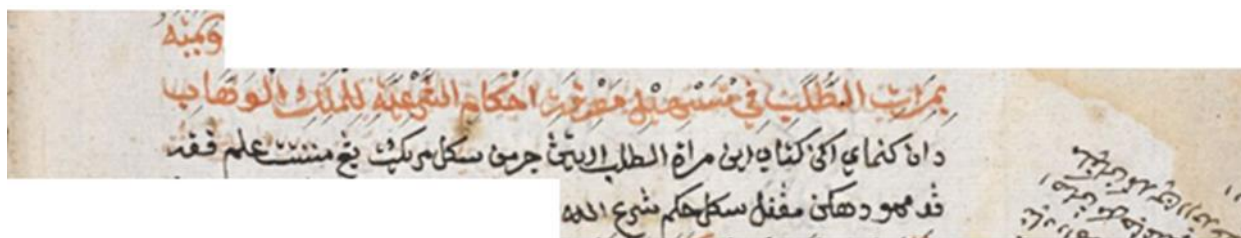 وسميته
بمرات الطلاب في تسهيل معرفت احكام الشرعية للملك الوهاب
دان كنماي اكن كتاب اين مراة الطلاب ارتيڽ چرمن سكل مريكئت يڠ منتت علم فقه
ڤد ممودهكن مڠنل سكل حكم شرع الله